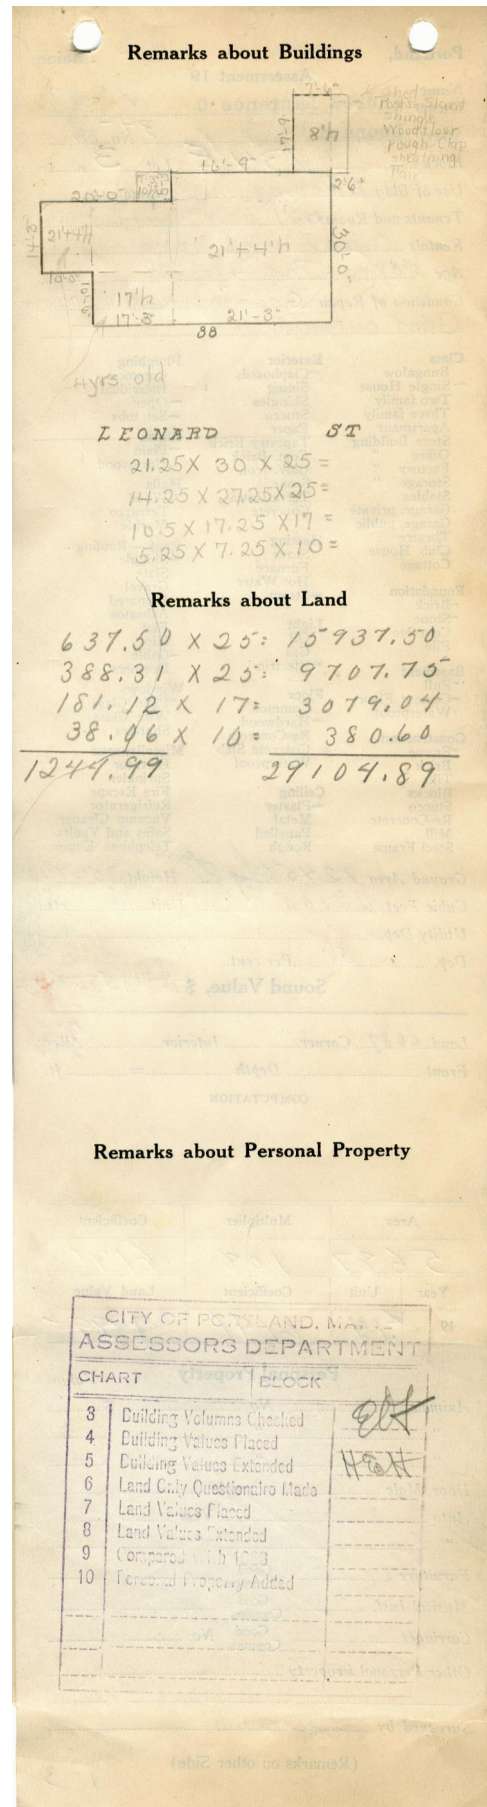 Remarks about Buildings
7'-6"
Shed
Posts Slant
Shingle
Wood floor
rough Clap
sheathing
Fair
17'-9
8'h
16'-9"
2'6"
20'-0"
14'-3"
21'+4'h
21'+4'h
30'-0"
10'-0"
10'-6"
17'h
17'-3"
21'-3"
38
4 yrs. old
LEONARD ST
21.25 X 30 X 25 =
14.25 X 27.25 X 25 =
10.5 X 17.25 X 17 =
5.25 X 7.25 X 10 =
Remarks about Land
637.50 X 25: 15937.50
388.31 X 25: 9707.75
181.12 X 17: 3079.04
38.06 X 10 = 380.60
1244.99 29104.89
Remarks about Personal Property
CITY OF PORTLAND, MAINE
ASSESSORS DEPARTMENT
CHART BLOCK
3 Building Volumns Checked
4 Building Values Placed
5 Building Values Extended
6 Land Only Questionaire Made
7 Land Values Placed
8 Land Values Extended
9 Compared With
10 Personal Property Added